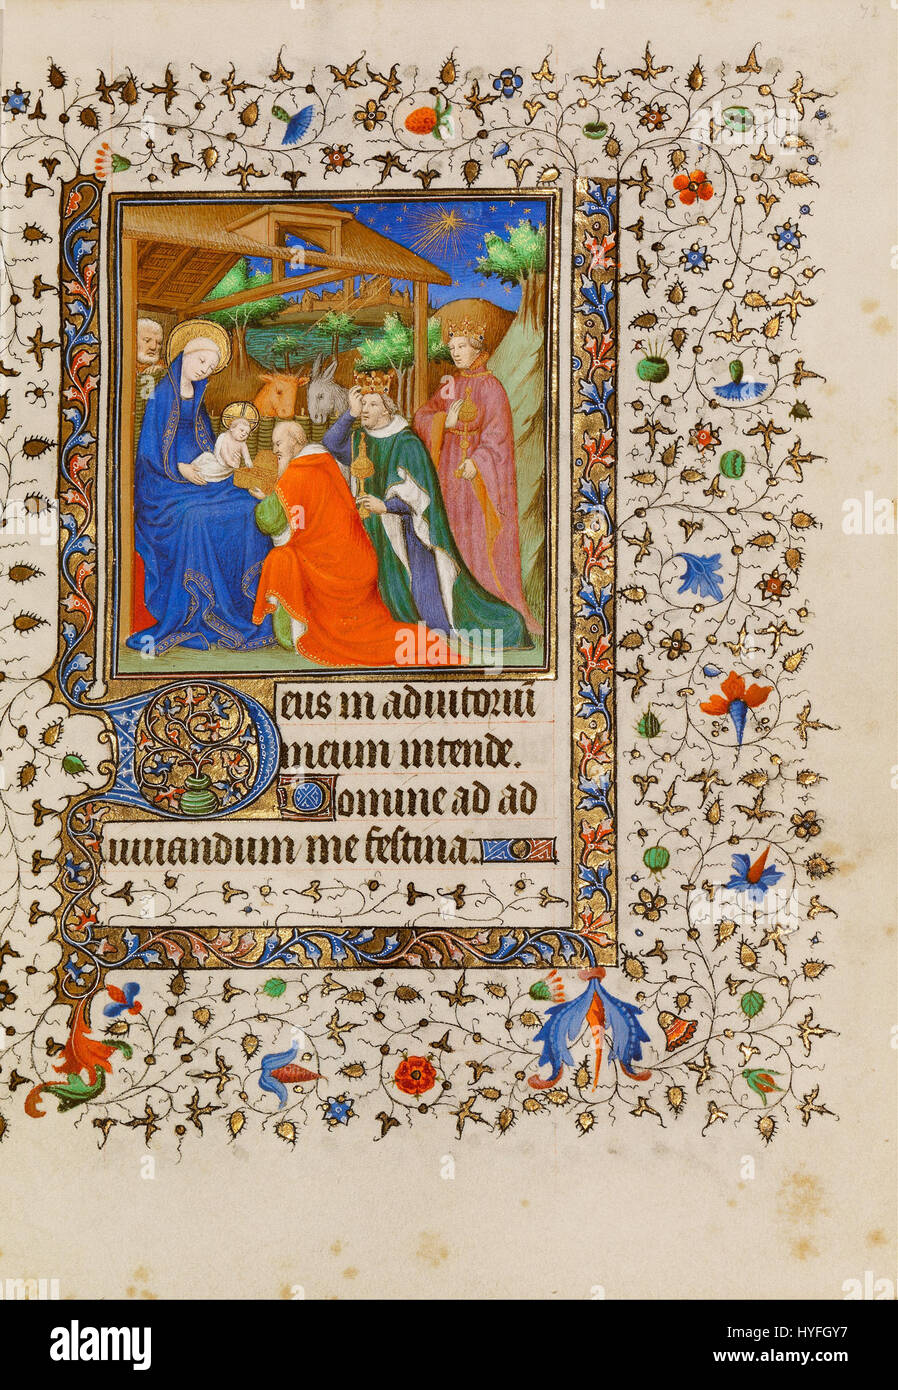 72
Deus in adiutoriū
meum intende.
Domine ad ad
iuuandum me festina.
alamy stock photo
HYFGY7
www.alamy.com